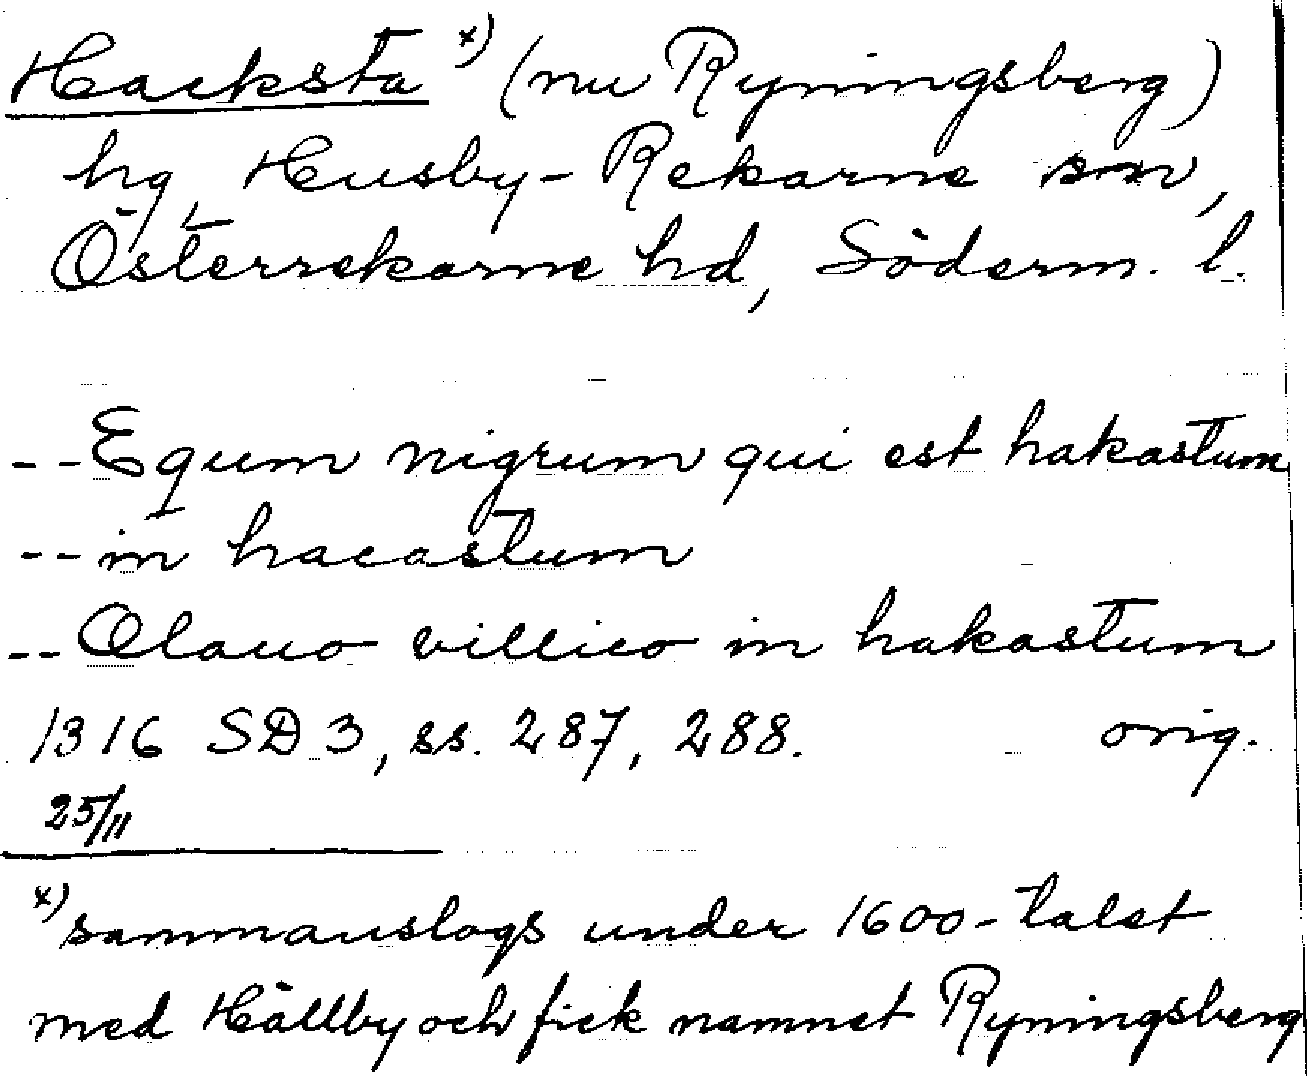 Hacksta x) (nu Ryningsberg)
hg, Husby-Rekarne sn,
Österrekarne hd, Söderm. l.
-- Equm nigrum qui est hakastum
-- in hacastum
-- Olauo villico in hakastum
1316 SD 3, ss. 287, 288. orig.
25/11
x) sammanslogs under 1600-talet
med Hällby och fick namnet Ryningsberg